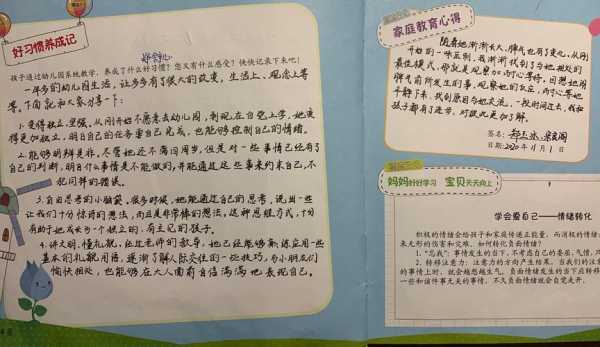 好习惯养成记
孩子通过幼儿园系统教学,养成了什么好习惯?您又有什么感受?快快记录下来吧!
一年多的幼儿园生活,让多多有了很大的改变,生活上、观念上等
等。下面就和大家分享一下:
1.变得独立、坚强,从刚开始不愿意去幼儿园,到现在自觉上学,她变
得更加独立,明白自己的任务要自己完成,也能够控制自己的情绪。
2.能够明辨是非,尽管她还不满四周岁,但是对一些事情已经有了
自己的判断,明白什么事情是不能做的,并能通过这些事来约束自己,不
犯同样的错误。
3.自由思考的小脑袋,很多时候,她能通过自己的思考,说出一些
让我们十分惊讶的想法,而且是非常棒的想法,这种思维方式,十分
有助于她成长为一个独立的,有主见的孩子。
4.讲文明,懂礼貌,经过老师的教导,她已经能够熟练应用一些
基本的礼貌用语,逐渐了解人际交往的一些技巧,与小朋友们
愉快相处,也能够在大人面前自信满满地表现自己。
家庭教育心得
随着她渐渐长大,脾气也有了变化,从刚
开始的一味压制,我渐渐找到了与她相处的
最佳模式,那就是观察加
脾气前所发生的事,观察她的反应,
平静下来,找到原因与她交流,一段时间过去,我和
孩子都有了进步,对彼此更加了解。
签名:
日期:2020年11月1日
妈妈好好学习 宝贝天天向上
学会爱自己——情绪转化
积极的情绪会给孩子和家庭传递正能量,而消极的情绪
来无形的伤害和灾难。如何转化负面情绪?
1.“忘我”:事情发生的当下,不考虑自己的委屈,气愤,
2.转移注意力:注意力的方向产生结果。当我们的注意
的事情上时,就会越想越生气。负面情绪发生的当下应转移
一些和该件事无关的事情,不久负面情绪就会自觉走开。